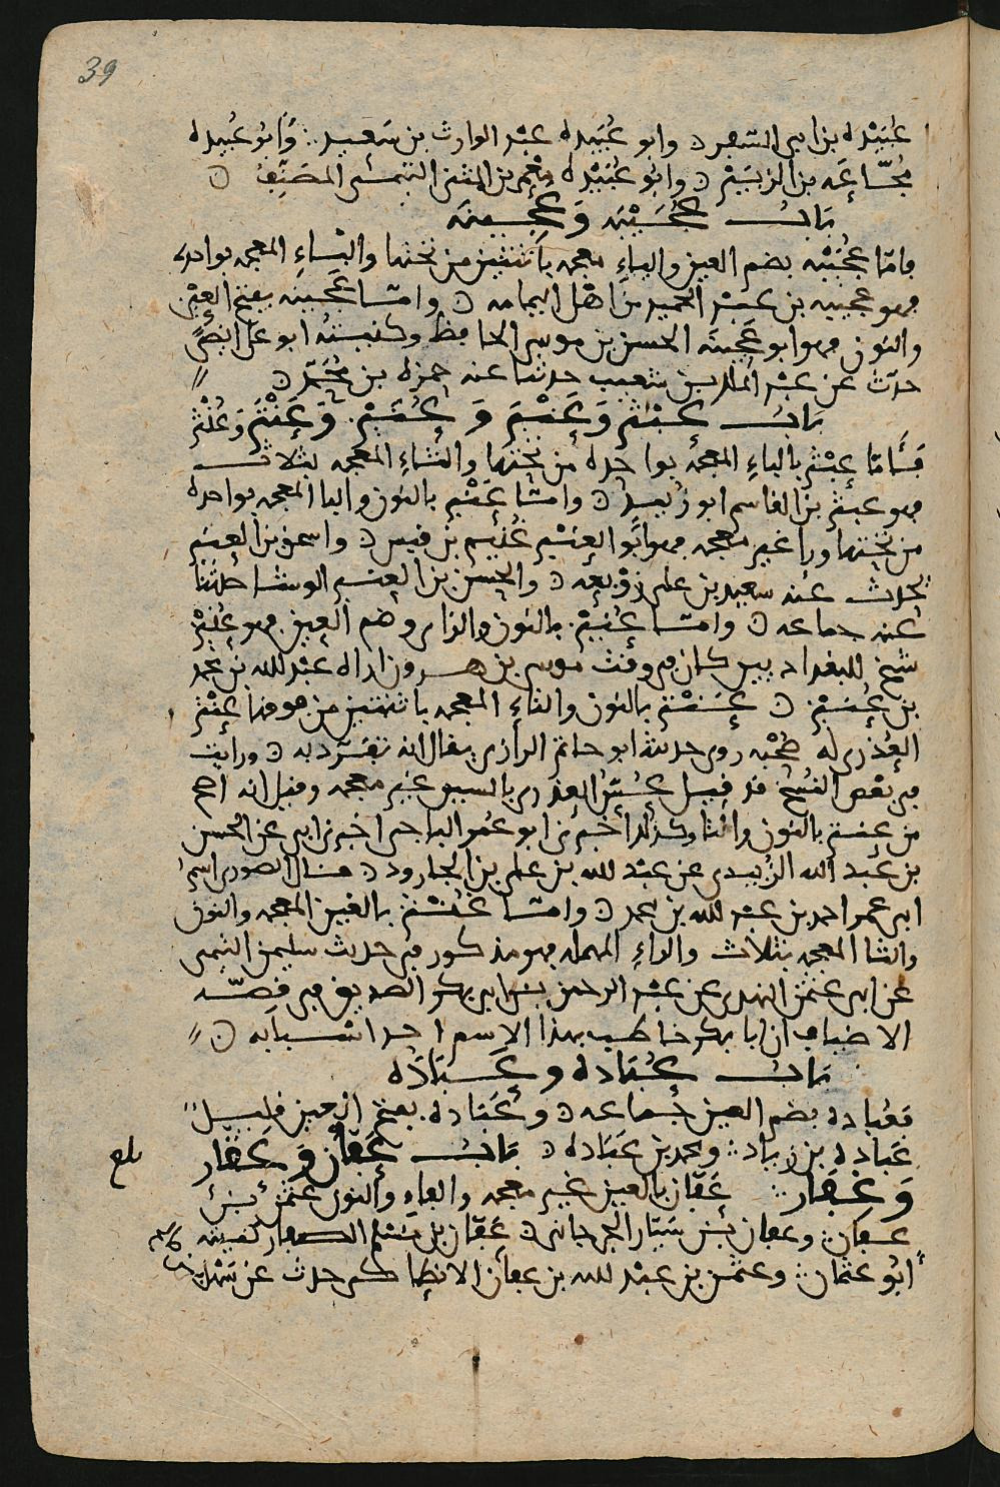 39
عُبَيْده بن ابى السفر وابو عُبَيده عبد الوارث بن سَعيد وَابو عُبيده
مُجّاعَه بن الزبَيْر وابو عُبَيْده مَعْمر بن المثنى التيمى المصَنِّف
بَابُ عُجَيْبَه وَعَجِينَه
فامّا عُجَيْبَه بضم العين والياءِ معجمه باثنتين من تحتها والبَاءِ المعجمه بواحده
فهو عجيبه بن عبد الحميد من اهل اليمامه وامّا عَجينه بفتح العين
والنون فهو ابو عَجينَه الحسن بن موسى الحافظ وكنيته ابو على ايضًا
حدّث عن عبد الملك بن شعيب حدثنا عنه حمزه بن مُحَمّد
بَابُ عَبْثَر وَعَنْبَر وَ عُنَيْز وَعَنْتَر وَغُنْثَر
فَأَمّا عبْثر بالباءِ المعجمه بواحده من تحتها والثاءِ المعجمه بثلاث
فهو عبثر بن القاسم ابو زُبيد وامّا عَنْبر بالنون والبا المعجمه بواحده
من تحتها ورا غير معجمه فهو ابُو العنبَر غُنَيم بن قيس واسمعيل بن العنبر
يحدث عنه سعيد بن على زوبعه والحسن بن العنبر الوشا حدثنا
عنه جماعه وامّا عُنيز بالنون والزاى وضم العين فهو عُنَيْز
شيخ للبغداديين كان فى وقت موسى بن هرون اراه عبد الله بن محمد
بن عُنيز عَنْتَر بالنون والتاءِ المعجمه باثنتين من فوقها عنتر
العُذرى له صُحْبَه روى حديثه ابو حاتم الرازى يقال انه تفرّد به ورايت
فى بعض النُسخ قد قيل عُسّ العذرى بالسين غير معجمه وقيل انه اصح
من عنتر بالنون والتا وكذلك اخبرنى ابو عُمر الباجى اخبرنى ابى عن الحسن
بن عَبد الله الزُبيدى عن عبد الله بن على بن الجارود قال الصورى اسم
ابى عمر احمد بن عبد الله بن محمد وامّا غُنْثَر بالغين المعجمه والنون
والثا المعجمه بثلاث والراءِ المهمله فهو مذكور فى حديث سليمن التيمى
عن ابى عثمن النهدى عن عبد الرحمن بن ابى بكر الصديق فى قِصّه
الاضياف ان ابا بكر خاطب بهذا الاسم احد اسبابه
بَابُ عُبَاده وعَبَادَه
فعُباده بضم العين جماعه وعَبَاده بفتح العين قليل
عَباده بن زياد ومحمد بن عَبَاده بَابُ عَفّان وَعَفّار
وَغِفَار عَفّان بالعين غير معجمه والفاءِ والنون عثمن بن
عفان وعفان بن سَيّار الجرجانى عَفّان بن مسْلم الصفار كنيته
ابُو عثمان وعثمن بن عبد الله بن عفان الانطاكى حدث عن
بلغ